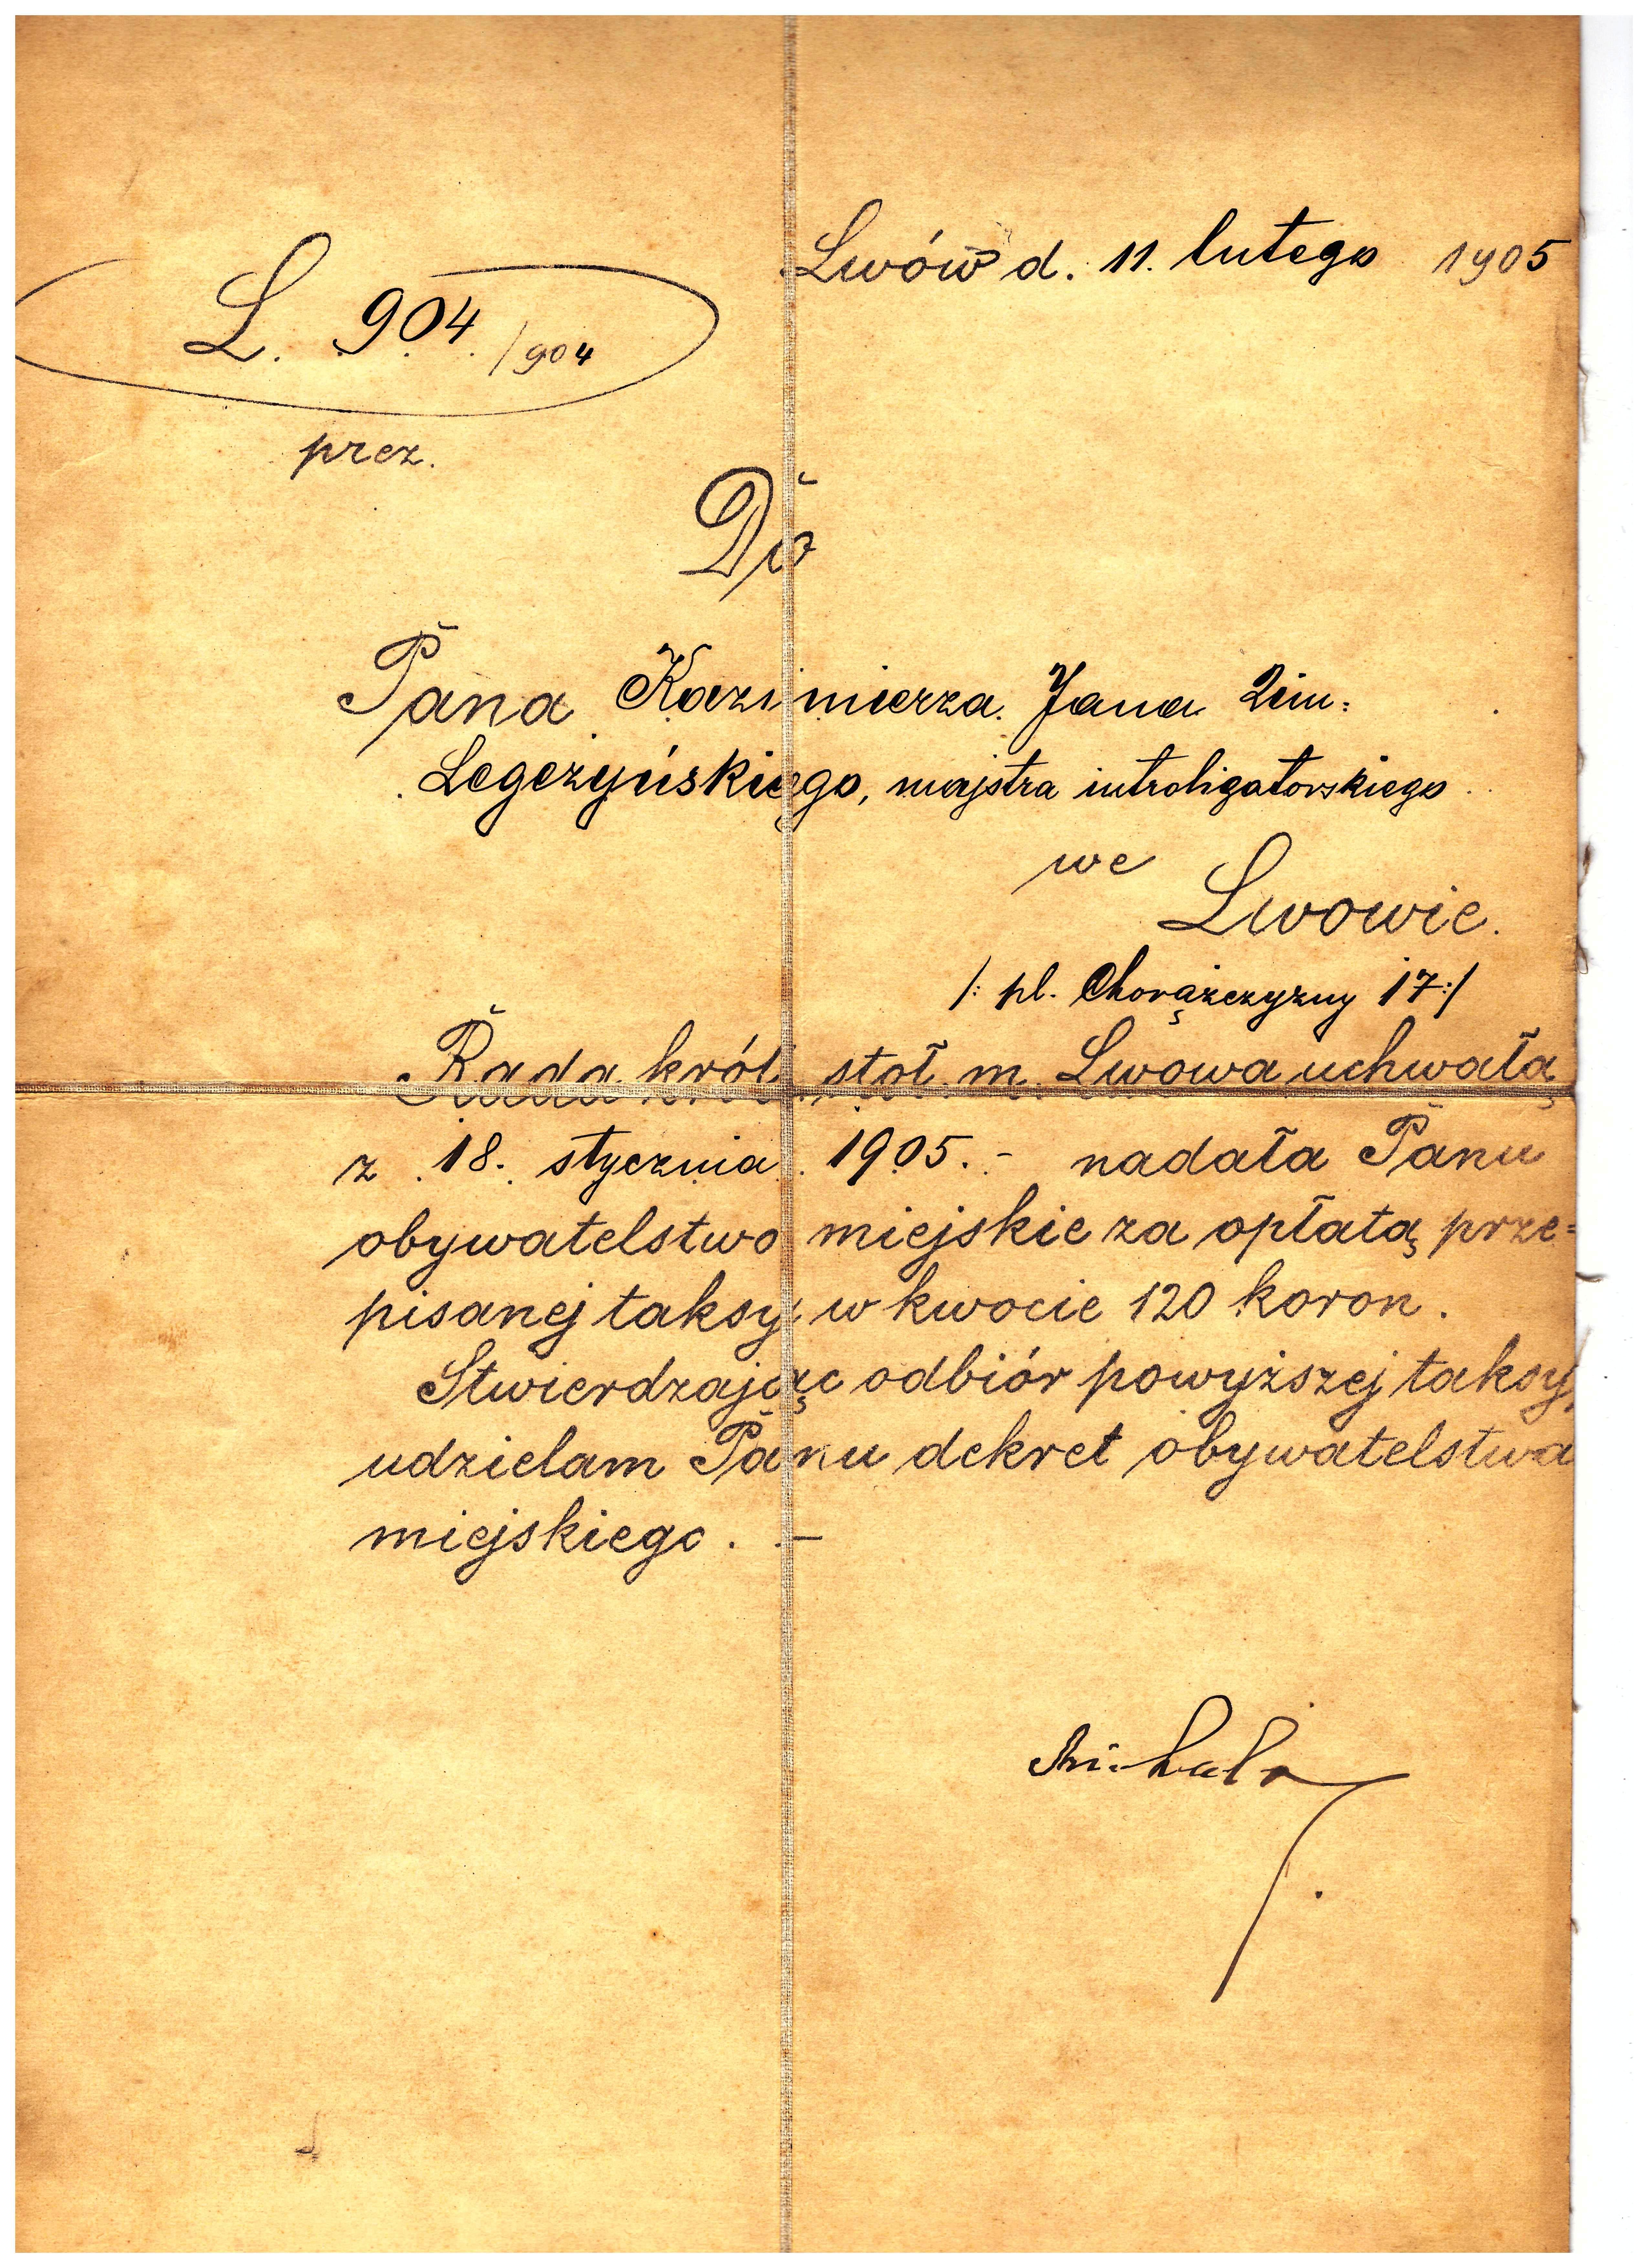 Lwów d. 11. lutego 1905
L. 904/904
prez.
Do
Pana Kazimierza Jana 2im:
Legeżyńskiego, majstra introligatorskiego
we
Lwowie.
/: pl. Chorążczyzny 17:/
Rada król. stoł. m. Lwowa uchwałą
z 18. stycznia 1905.- nadała Panu
obywatelstwo miejskie za opłatą prze=
pisanej taksy w kwocie 120 koron.
Stwierdzając odbiór powyższej taksy,
udzielam Panu dekret obywatelstwa
miejskiego. -